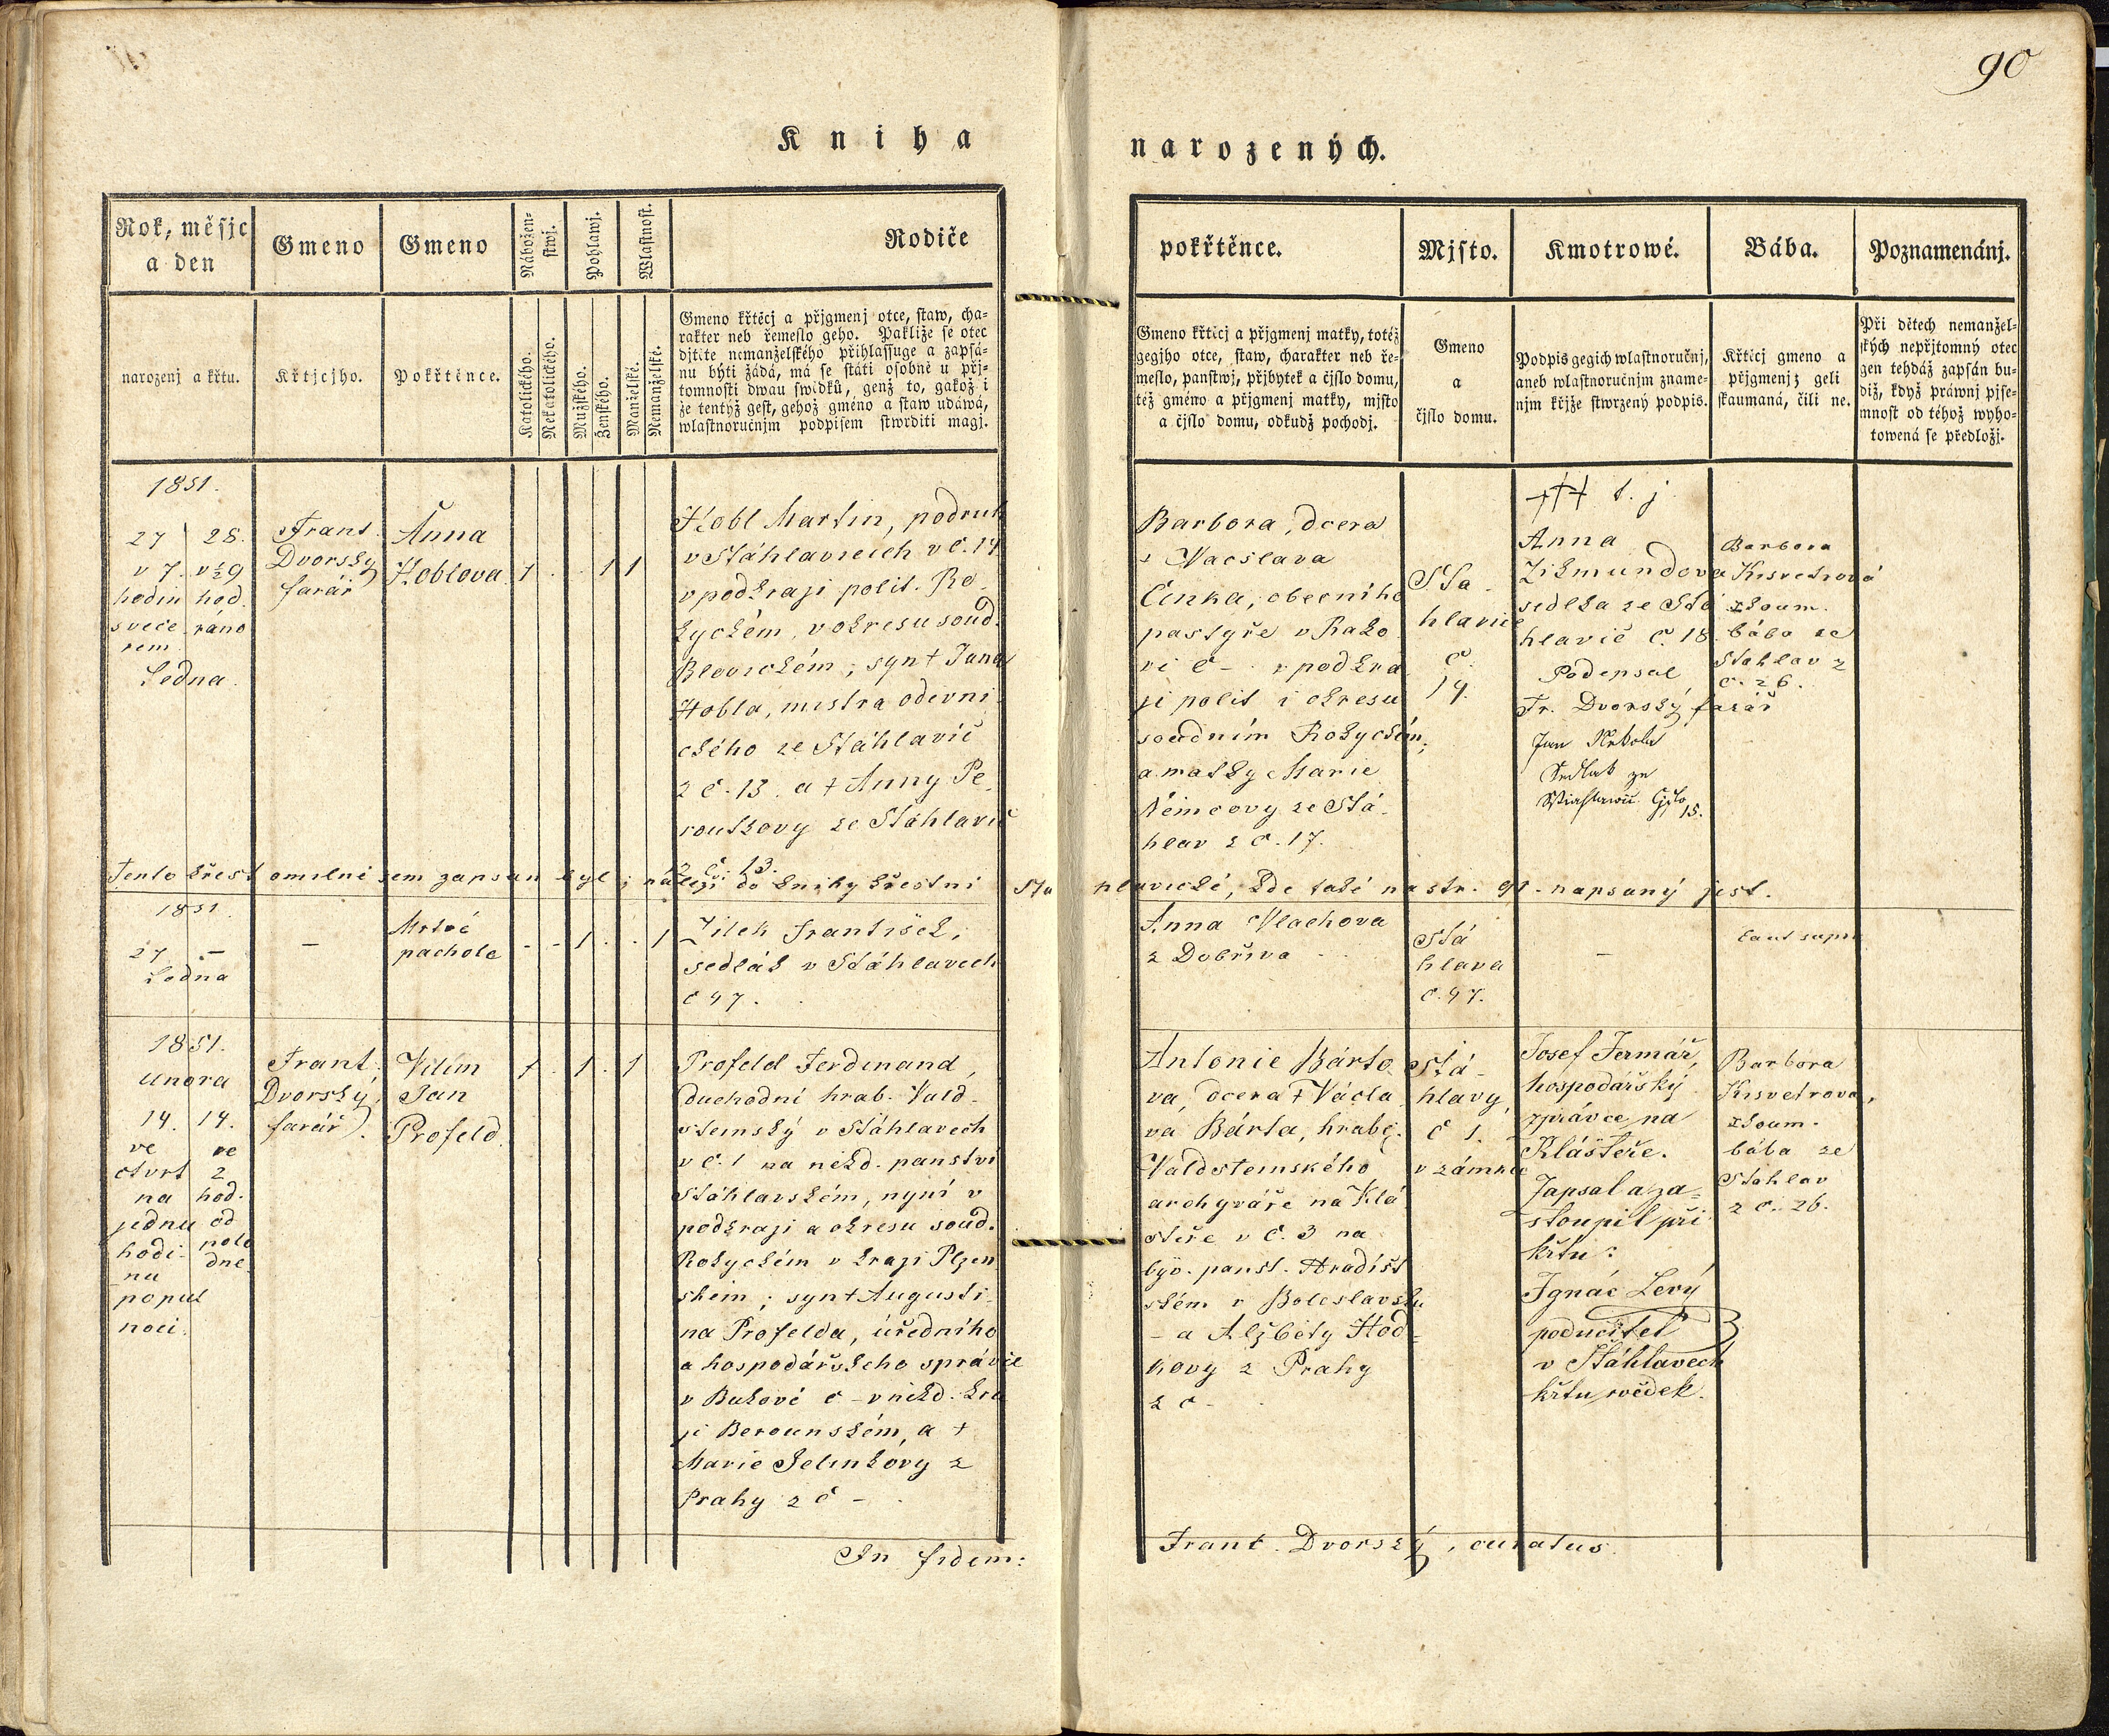 90
Kniha
narozených.
Rok, měsjc
a den
narozenj a křtu.
Gmeno
Křtjcjho.
Gmeno
Pokřtěnce.
Nábožen-
stwj.
Katolického.
Nekatolického.
Pohlawj.
Mužského.
Ženského.
Wlastnost.
Manželské.
Nemanželské.
Rodiče
Gmeno křtěcj a přjgmenj otce, staw, cha-
rakter neb řemeslo geho. Pakliže se otec
djtěte nemanželského přihlassuge a zapsá-
nu býti žádá, má se státi osobně u přj-
tomnosti dwau swědků, genž to, gakož i
že tentýž gest, gehož gméno a staw udáwá,
wlastnoručnjm podpisem stwrditi magj.
pokřtěnce.
Gmeno křticj a přjgmenj matky, totéž
gegjho otce, staw, charakter neb ře-
meslo, panstwj, přjbytek a čjslo domu,
též gméno a přjgmenj matky, mjsto
a čjslo domu, odkudž pochodj.
Mjsto.
Gmeno
a
čjslo domu.
Kmotrowé.
Podpis gegich wlastnoručnj,
aneb wlastnoručnjm zname-
njm křjže stwrzený podpis.
Bába.
Křticj gmeno a
přjgmenj; geli
skaumaná, čili ne.
Poznamenánj.
Při dětech nemanžel-
ských nepřjtomný otec
gen tehdáž zapsán bu-
diž, když práwnj pjse-
mnost od téhož wyho-
towená se předložj.
1851.
27 28.
v 7. v ½9
hodin hod.
sveče ráno
rem
Ledna.
Frant.
Dvorský
farář
Anna
Hoblova.
1 . . 1 1
Hobl Martin, podruh
v Stáhlavicích v č. 14
v podkraji polit. Ro-
kyckém, v okresu soud.
Blovickém; syn † Jana
Hobla, mistra oděvni-
ckého ze Stáhlavič
z č. 13. a † Anny Pe-
routkovy ze Stáhlavič
z č. 13.
Barbora, dcera
† Vacslava
Činka, obecního
pastyře v Rako
vi č - v podkra
ji polit i okresu
soudním Rokyckém;
a matky Marie
Němcovy ze Stá-
hlav z č. 17.
Sta-
hlavice
č.
14.
††† t. j.
Anna
Zikmundova
sedlka ze Stá
hlavič č. 18
Podepsal
Fr. Dvorský farář
Jan
Sedlak ze
Čjslo 15.
Barbora
Kisvetrová
zkoum.
bába ze
Stahlav z
č. 26.
Tento křest omilně sem zapsan byl; náleži do knihy křestní Sta hlavické, kde také na str. 91. napsaný jest.
1851.
27 -
Ledna
-
Mrtvé
pachole
- - 1 . . 1
Jilek František,
sedlák v Stáhlavech
č 47.
Anna Vlachova
z Dobřiva
Stá
hlava
č. 47.
-
1851.
unora
14. 14.
ve ve
čtvrt 2
na hod.
jednu od
hodi- pole
nu dne
popul
noci.
Frant.
Dvorský,
farář.
Vilím
Jan
Profeld.
1 . 1 . 1
Profeld Ferdinand,
duchodní hrab. Vald-
stemský v Stáhlavech
v č. 1 na někd. panství
Stáhlavském, nyní v
podkraji a okresu soud.
Rokyckém v kraji Plzen
ském; syn † Augusti-
na Profelda, úředního
a hospodářského správce
v Bukové č - v někd. kra
ji Berounském, a †
Marie Jelinkovy z
Prahy z č -
Antonie Bárto
va, dcera † Václa
va Bárta, hrabě.
Valdstemského
archyváře na Klá
steře v č. 3 na
býv. panst. Hradišt
ském v Boleslavsku
- a Alžběty Hod-
kovy z Prahy
z č -
Stá-
hlavy,
č 1.
v zámku
Josef Jermář,
hospodářský
zprávce na
Klášteře.
Zapsal a za-
stoupil při
křtu:
Ignác Lerý
podučitel
v Stáhlavech
křtu svědek.
Barbora
Kisvetrova,
zkoum.
bába ze
Stahlav
z č. 26.
In fidem:
Frant. Dvorský, curatus.